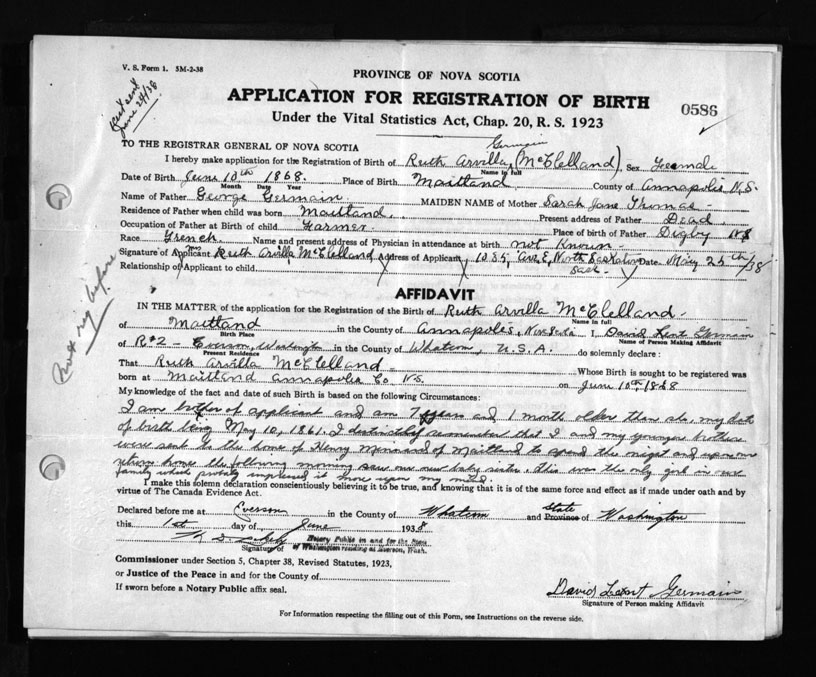 V. S. Form 1. 5M-2-38
Rect sent
June 24/38
PROVINCE OF NOVA SCOTIA
APPLICATION FOR REGISTRATION OF BIRTH
0586
Under the Vital Statistics Act, Chap. 20, R. S. 1923
TO THE REGISTRAR GENERAL OF NOVA SCOTIA
Germain
I hereby make application for the Registration of Birth of Ruth Arvilla (McClelland) Sex Female
Name in full
Date of Birth June 10th 1868. Place of Birth Maitland County of Annapolis N.S.
Month Date Year
Name of Father George Germain MAIDEN NAME of Mother Sarah Jane Thomas
Residence of Father when child was born Maitland. Present address of Father Dead.
Occupation of Father at Birth of child Farmer. Place of birth of Father Digby N.S
Race French Name and present address of Physician in attendance at birth not Known
Signature of Applicant Mrs Ruth Arvilla McClelland Address of Applicant 1035, Ave E, North Saskatoon Date May 25th/38
Sask
Relationship of Applicant to child
Not reg before
AFFIDAVIT
IN THE MATTER of the application for the Registration of the Birth of Ruth Arvilla McClelland
Name in full
of Maitland in the County of Annapolis, Nova Scotia I, David Lent Germain
Birth Place Name of Person Making Affidavit
of R#2 - Everson, Washington in the County of Whatcom, U.S.A. do solemnly declare:
Present Residence
That Ruth Arvilla McClelland Whose Birth is sought to be registered was
born at Maitland Annapolis Co N.S. on June 10th 1868
My knowledge of the fact and date of such Birth is based on the following Circumstances:
I am brother of applicant and am 7 years and 1 month older than she, my date
of birth being May 10, 1861. I distinctly remember that I and my younger brothers
were sent to the home of Henry of Maitland to spend the night and upon our
return home the following morning saw our new baby sister. This was the only girl in our
family which probably impressed it more upon my mind.
I make this solemn declaration conscientiously believing it to be true, and knowing that it is of the same force and effect as if made under oath and by
virtue of The Canada Evidence Act.
Declared before me at Everson in the County of Whatcom and Province of State Washington
this 1st day of June 1938
Notary Public in and for the State
Signature of of Washington residing at Everson, Wash.
Commissioner under Section 5, Chapter 38, Revised Statutes, 1923,
or Justice of the Peace in and for the County of
If sworn before a Notary Public affix seal.
David Lent Germain
Signature of Person making Affidavit
For Information respecting the filling out of this Form, see Instructions on the reverse side.